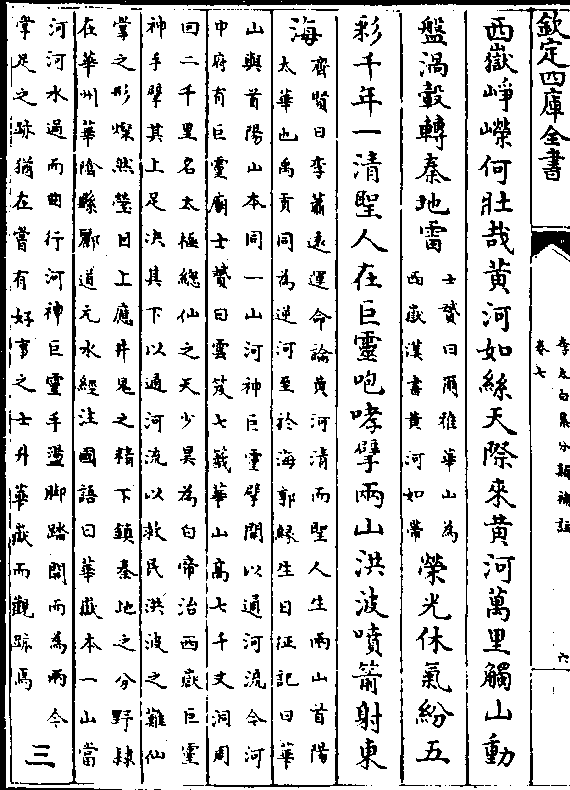 欽定四庫全書
李太白集分類補註
卷七
六
西嶽崢嶸何壯哉黃河如絲天際來黃河萬里觸山動
盤渦轂轉秦地雷
士贇曰爾雅華山為
西嶽漢書黃河如帶
榮光休氣紛五
彩千年一清聖人在巨靈咆哮擘兩山洪波噴箭射東
海
齊賢曰李蕭遠運命論黃河清而聖人生兩山首陽
太華也禹貢同為逆河至於海郭緣生曰征記曰華
山與首陽山本同一山河神巨靈擘開以通河流今河
中府有巨靈廟士贇曰雲笈七籤華山高七千丈洞周
回二千里名太極總仙之天少昊為白帝治西嶽巨靈
神手擘其上足決其下以通河流以救民洪波之難仙
掌之形燦然瑩目上應井鬼之精下鎮秦地之分野隸
在華州華隂縣酈道元水經注國語曰華嶽本一山當
河河水過而曲行河神巨靈手盪脚踏開而為兩今
掌足之跡猶在嘗有好事之士升華嶽而觀跡焉
三